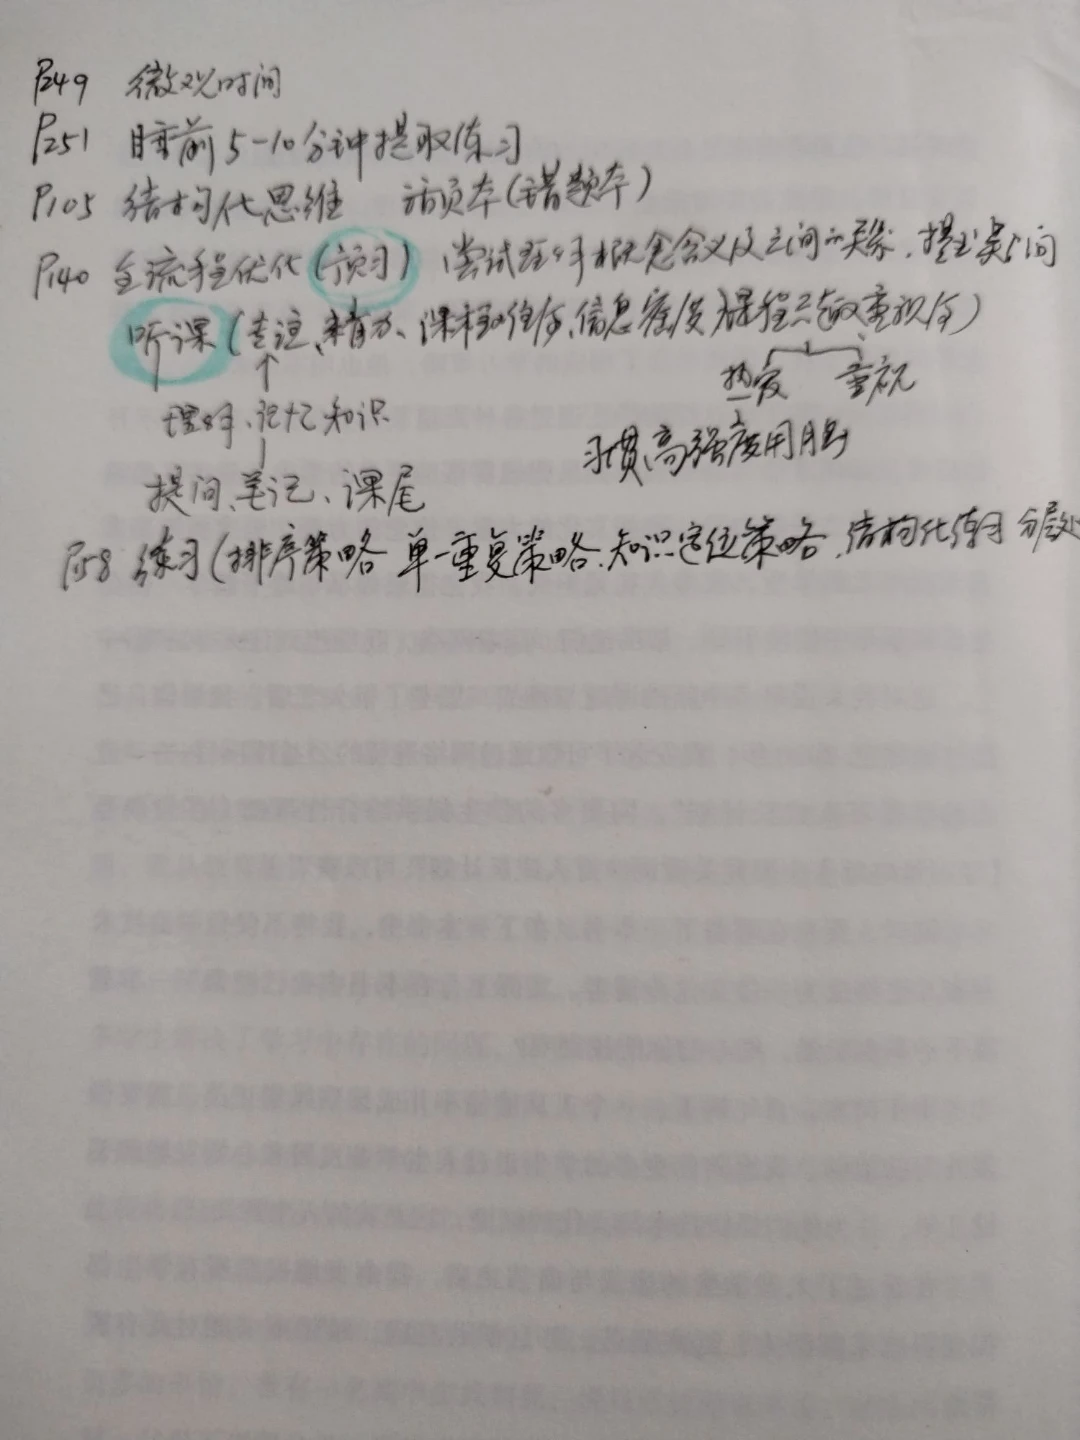 P249 微观时间
P251 睡前5-10分钟提取练习
P105 结构化思维 活页本(错题本)
P140 全流程优化(预习) 尝试理解概念含义及之间的关系.提出疑问
听课(专注、精力、课程、信息密度 课程 重视
热爱 重视
理解、记忆知识
习惯高强度用脑
提问、笔记、课尾
P158 练习(排序策略 单一重复策略.知识定位策略.结构化练习 分层